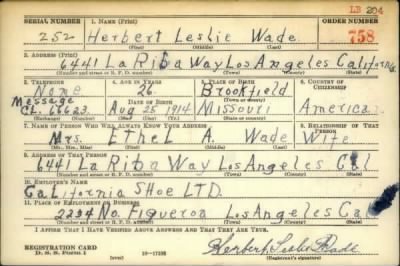 LB 204
SERIAL NUMBER 1. NAME (Print) ORDER NUMBER
252 Herbert Leslie Wade 758
(First) (Middle) (Last)
2. ADDRESS (Print)
6441 La Riba Way Los Angeles California
(Number and street or R. F. D. number) (Town) (County) (State)
3. TELEPHONE 4. AGE IN YEARS 5. PLACE OF BIRTH 6. COUNTRY OF CITIZENSHIP
None 26 Brookfield
Message DATE OF BIRTH (Town or county)
CL. 18623 Aug 25 1914 Missouri American
(Exchange) (Number) (Mo.) (Day) (Yr.) (State or country)
7. NAME OF PERSON WHO WILL ALWAYS KNOW YOUR ADDRESS 8. RELATIONSHIP OF THAT PERSON
Mrs. Ethel A. Wade Wife
(Mr., Mrs., Miss) (First) (Middle) (Last)
9. ADDRESS OF THAT PERSON
6441 La Riba Way Los Angeles Cal
(Number and street or R. F. D. number) (Town) (County) (State)
10. EMPLOYER'S NAME
California Shoe LTD.
11. PLACE OF EMPLOYMENT OR BUSINESS
2234 No. Figueroa Los Angeles Cal
(Number and street or R. F. D. number) (Town) (County) (State)
I AFFIRM THAT I HAVE VERIFIED ABOVE ANSWERS AND THAT THEY ARE TRUE.
REGISTRATION CARD
D. S. S. Form 1 16—17105 Herbert Leslie Wade
(Registrant's signature)